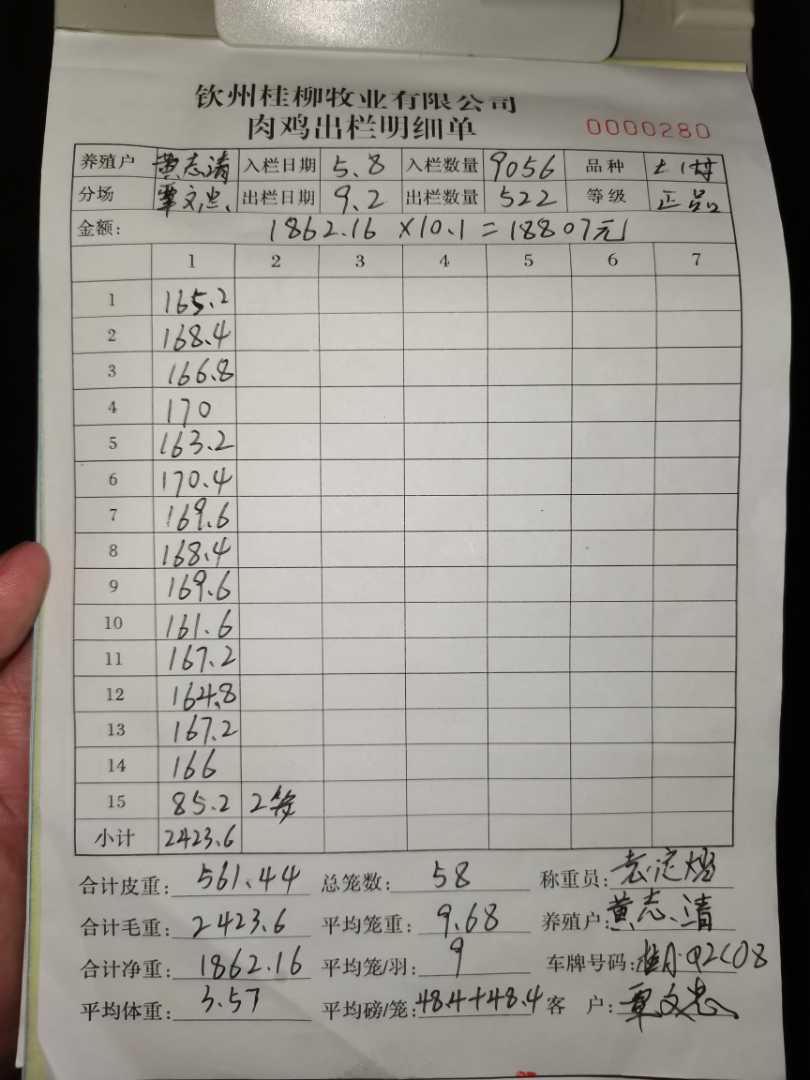 钦州桂柳牧业有限公司
肉鸡出栏明细单 0000280
养殖户 黄志清 入栏日期 5.8 入栏数量 9056 品种
分场 覃文忠 出栏日期 9.2 出栏数量 522 等级 正品
金额: 1862.16 ×10.1 = 18807元
1 2 3 4 5 6 7
1 165.2
2 168.4
3 166.8
4 170
5 163.2
6 170.4
7 169.6
8 168.4
9 169.6
10 161.6
11 167.2
12 164.8
13 167.2
14 166
15 85.2 2笼
小计 2423.6
合计皮重: 561.44 总笼数: 58 称重员:
合计毛重: 2423.6 平均笼重: 9.68 养殖户: 黄志清
合计净重: 1862.16 平均笼/羽: 9 车牌号码:
平均体重: 3.57 平均磅/笼: 48.4+48.4 客 户: 覃文忠